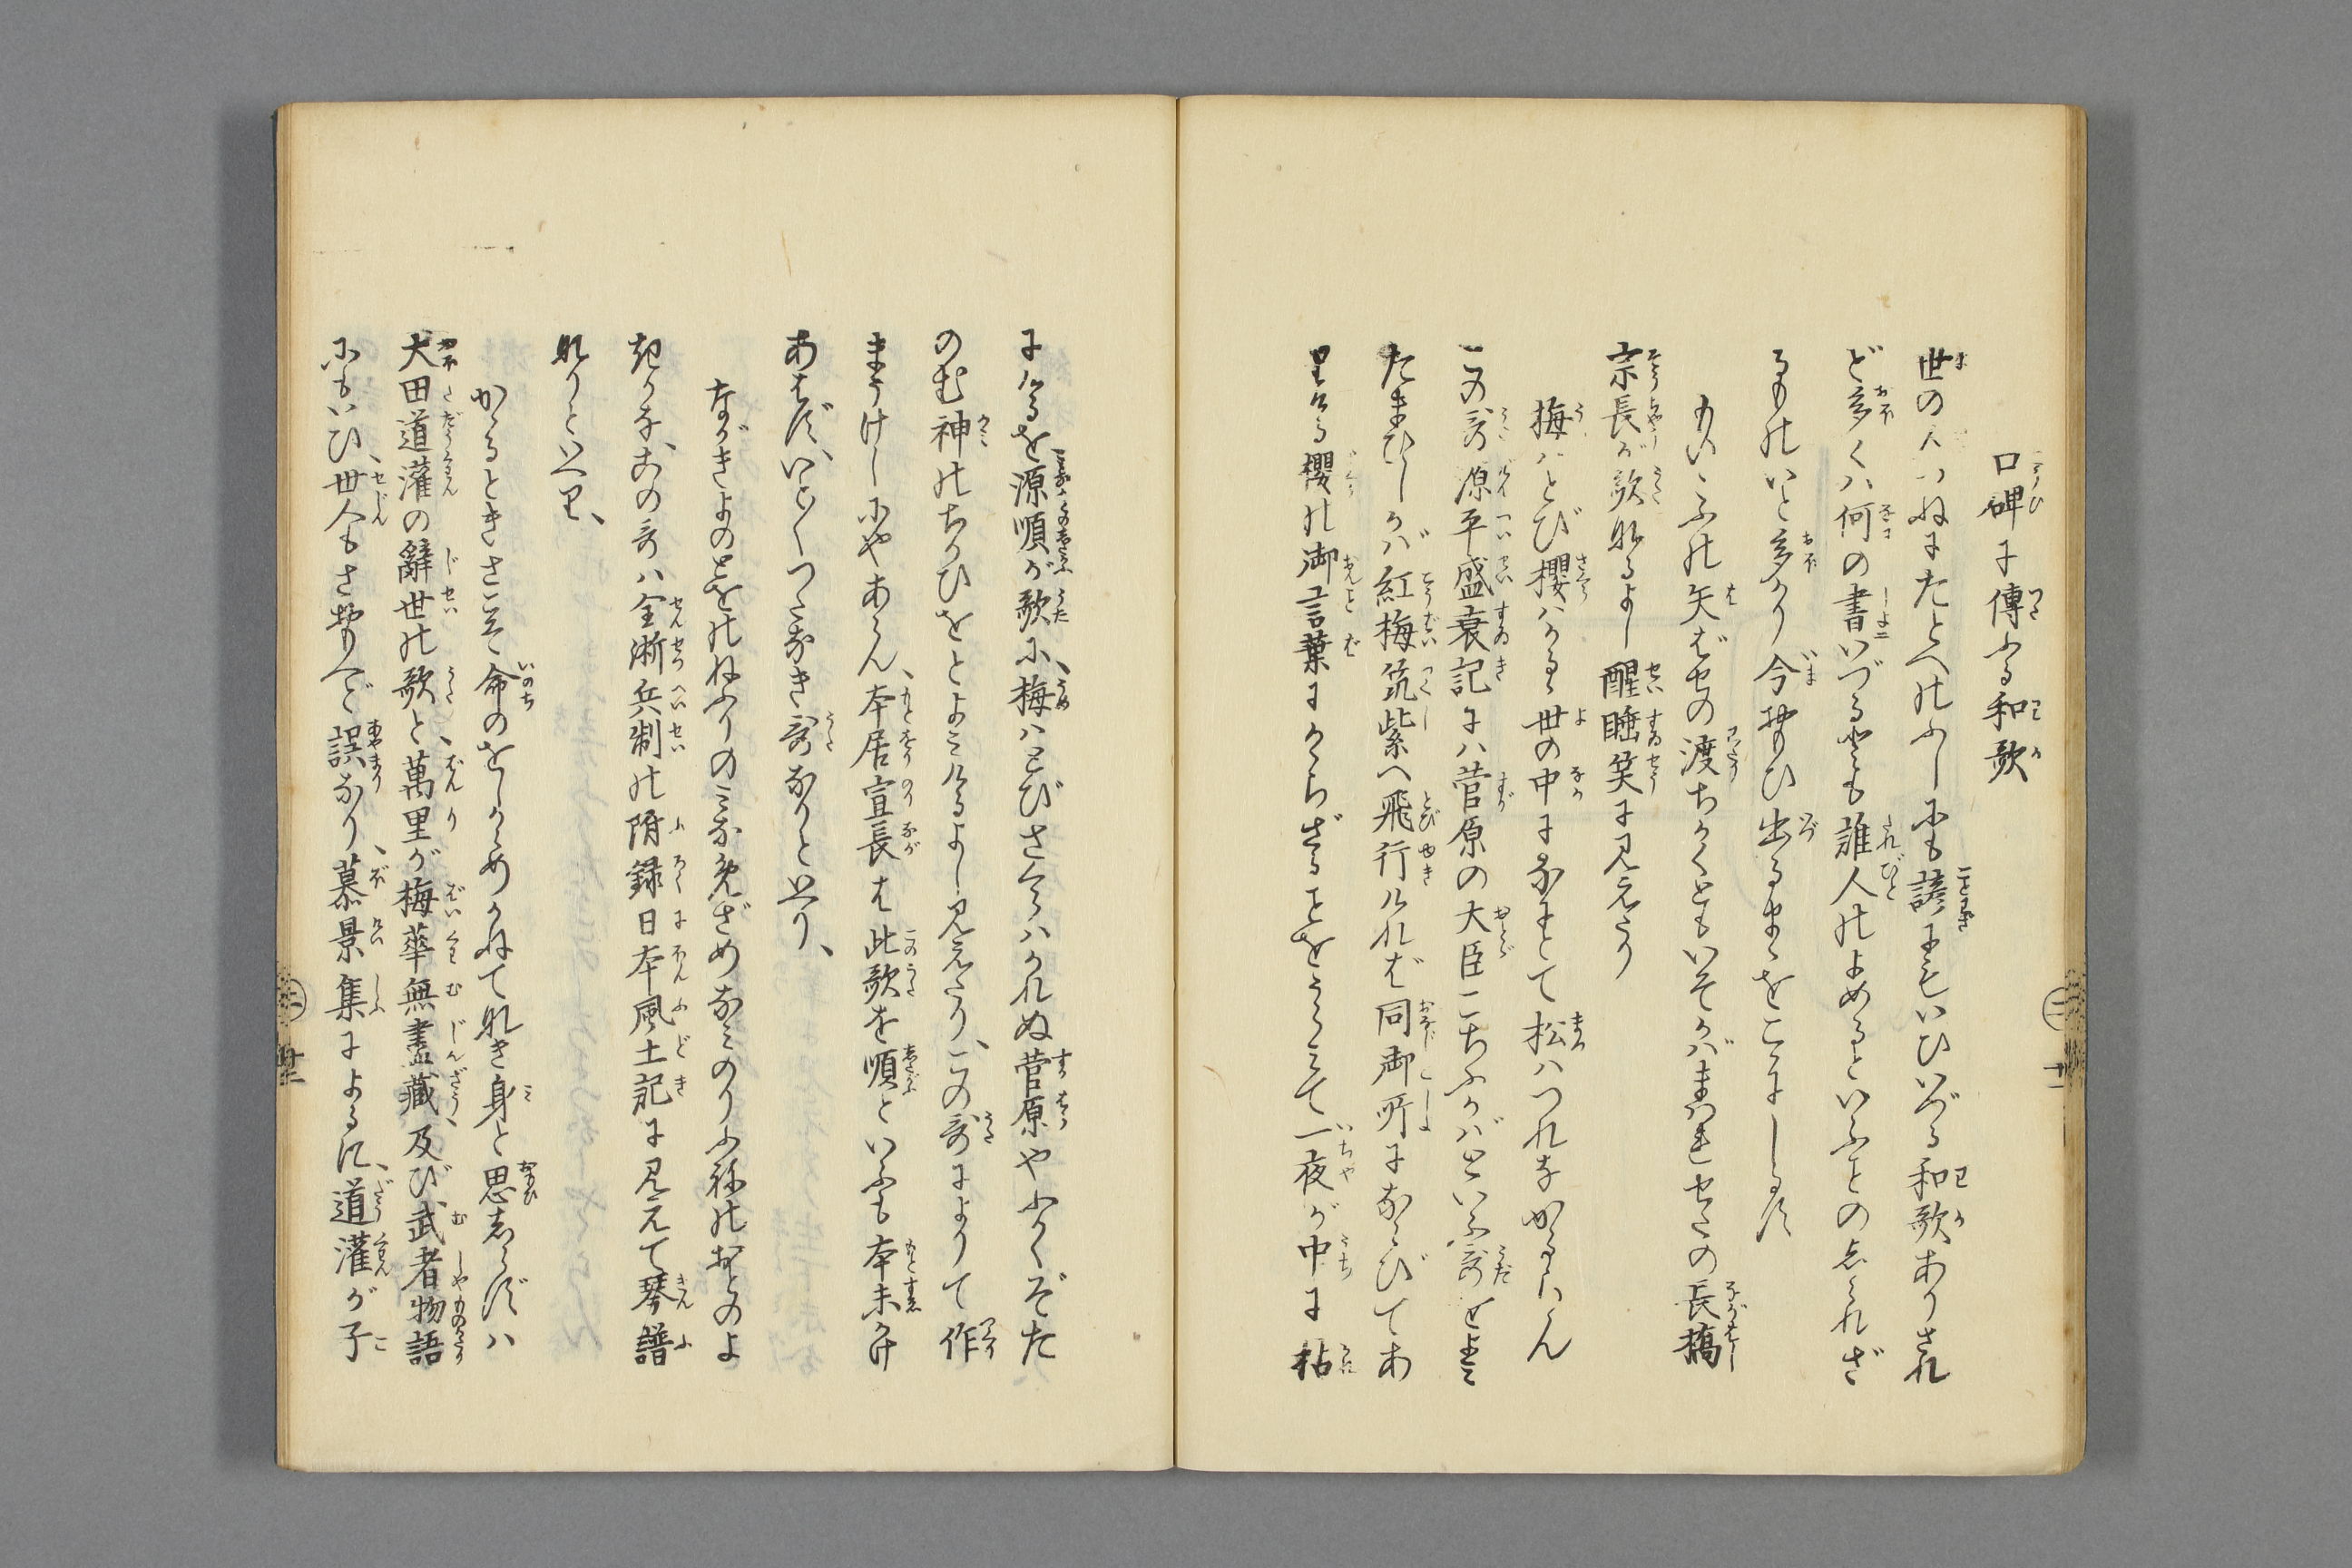 口碑に傳ふる和歌
世の人つねにたとへのふしにも諺にもいひいづる和歌あり され
ど多くハ何の書いづるとも誰人のよめるといふことのしられざ
るものいと多かり 今おもひ出るまゝをこゝにしるす
ものゝふの矢ばせの渡ちかくともいそがばまハれせたの長橋
宗長が歌なるよし 醒睡笑に見えたり
梅ハとび櫻ハかるゝ世の中になにとて松ハつれなかるらん
この哥 源平盛衰記にハ菅原の大臣こちふかばといふ哥をよミ
たまひしかバ紅梅筑紫へ飛行けれバ同御所にならびてあ
りける櫻の御言葉にかゝらざることをうらミて一夜が中に枯
にけるを源順が歌に、梅ハとびさくらハかれぬ菅原やふかくぞた
のむ神のちかひをとよミけるよし見えたり、この哥によりて作
まうけしにやあらん、本居宣長は此歌を順といふも本末かけ
あはず、いとつたなき哥なりといへり、
ながきよのとをのねふりのミなめざめなミのりふねのおとのよ
きかな、この哥ハ全浙兵制の附録日本風土記に見えて琴譜
なりといへり、
かゝるときさこそ命のをしからめかねてなき身と思しらずハ
大田道灌の辭世の歌と、萬里が梅華無盡藏、及び武者物語
にもいひ、世人もさおもへど誤なり、慕景集によるに、道灌が子